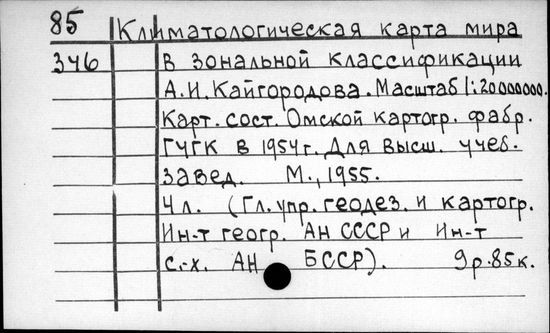 85 Климатологическая карта мира
346 в зональной классификации
А.И.Кайгородова. Масштаб 1:20000000.
Карт. сост. Омской картогр. фабр.
ГУГК в 1954г. Для высш. учеб.
завед. М., 1955.
4 л. (Гл. упр. геодез. и картогр.
Ин-т геогр. АН СССР и Ин-т
с.-х. АН БССР). 9р.85к.